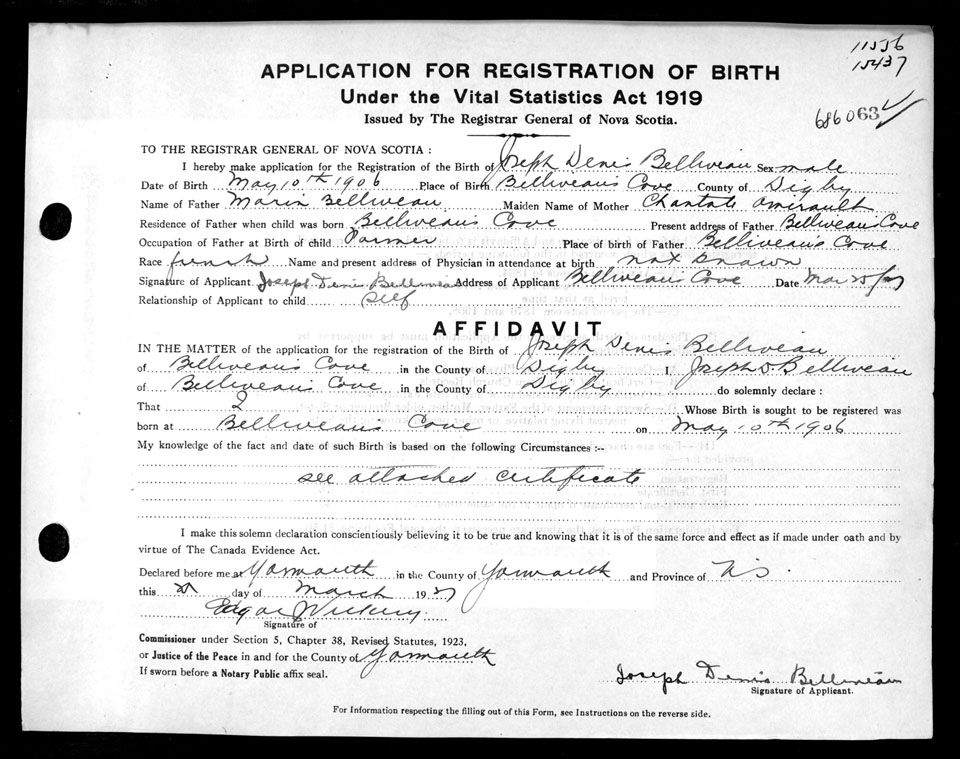 11556
15437
APPLICATION FOR REGISTRATION OF BIRTH
Under the Vital Statistics Act 1919
Issued by The Registrar General of Nova Scotia.
686063
TO THE REGISTRAR GENERAL OF NOVA SCOTIA :
I hereby make application for the Registration of the Birth of Joseph Denis Belliveau Sex male
Date of Birth May 10th 1906 Place of Birth Belliveau's Cove County of Digby
Name of Father Marin Belliveau Maiden Name of Mother Chantale Amirault
Residence of Father when child was born Belliveau's Cove Present address of Father Belliveau's Cove
Occupation of Father at Birth of child Farmer Place of birth of Father Belliveau's Cove
Race french Name and present address of Physician in attendance at birth not known
Signature of Applicant Joseph Denis Belliveau Address of Applicant Belliveau's Cove Date Mar
Relationship of Applicant to child self
AFFIDAVIT
IN THE MATTER of the application for the registration of the Birth of Joseph Denis Belliveau
of Belliveau's Cove in the County of Digby I, Joseph D. Belliveau
of Belliveau's Cove in the County of Digby do solemnly declare :
That I Whose Birth is sought to be registered was
born at Belliveau's Cove on May 10th 1906
My knowledge of the fact and date of such Birth is based on the following Circumstances :--
see attached certificate
I make this solemn declaration conscientiously believing it to be true and knowing that it is of the same force and effect as if made under oath and by
virtue of The Canada Evidence Act.
Declared before me at Yarmouth in the County of Yarmouth and Province of N.S.
this day of March 19
Edgar
Signature of
Commissioner under Section 5, Chapter 38, Revised Statutes, 1923,
or Justice of the Peace in and for the County of Yarmouth
If sworn before a Notary Public affix seal.
Joseph Denis Belliveau
Signature of Applicant.
For Information respecting the filling out of this Form, see Instructions on the reverse side.